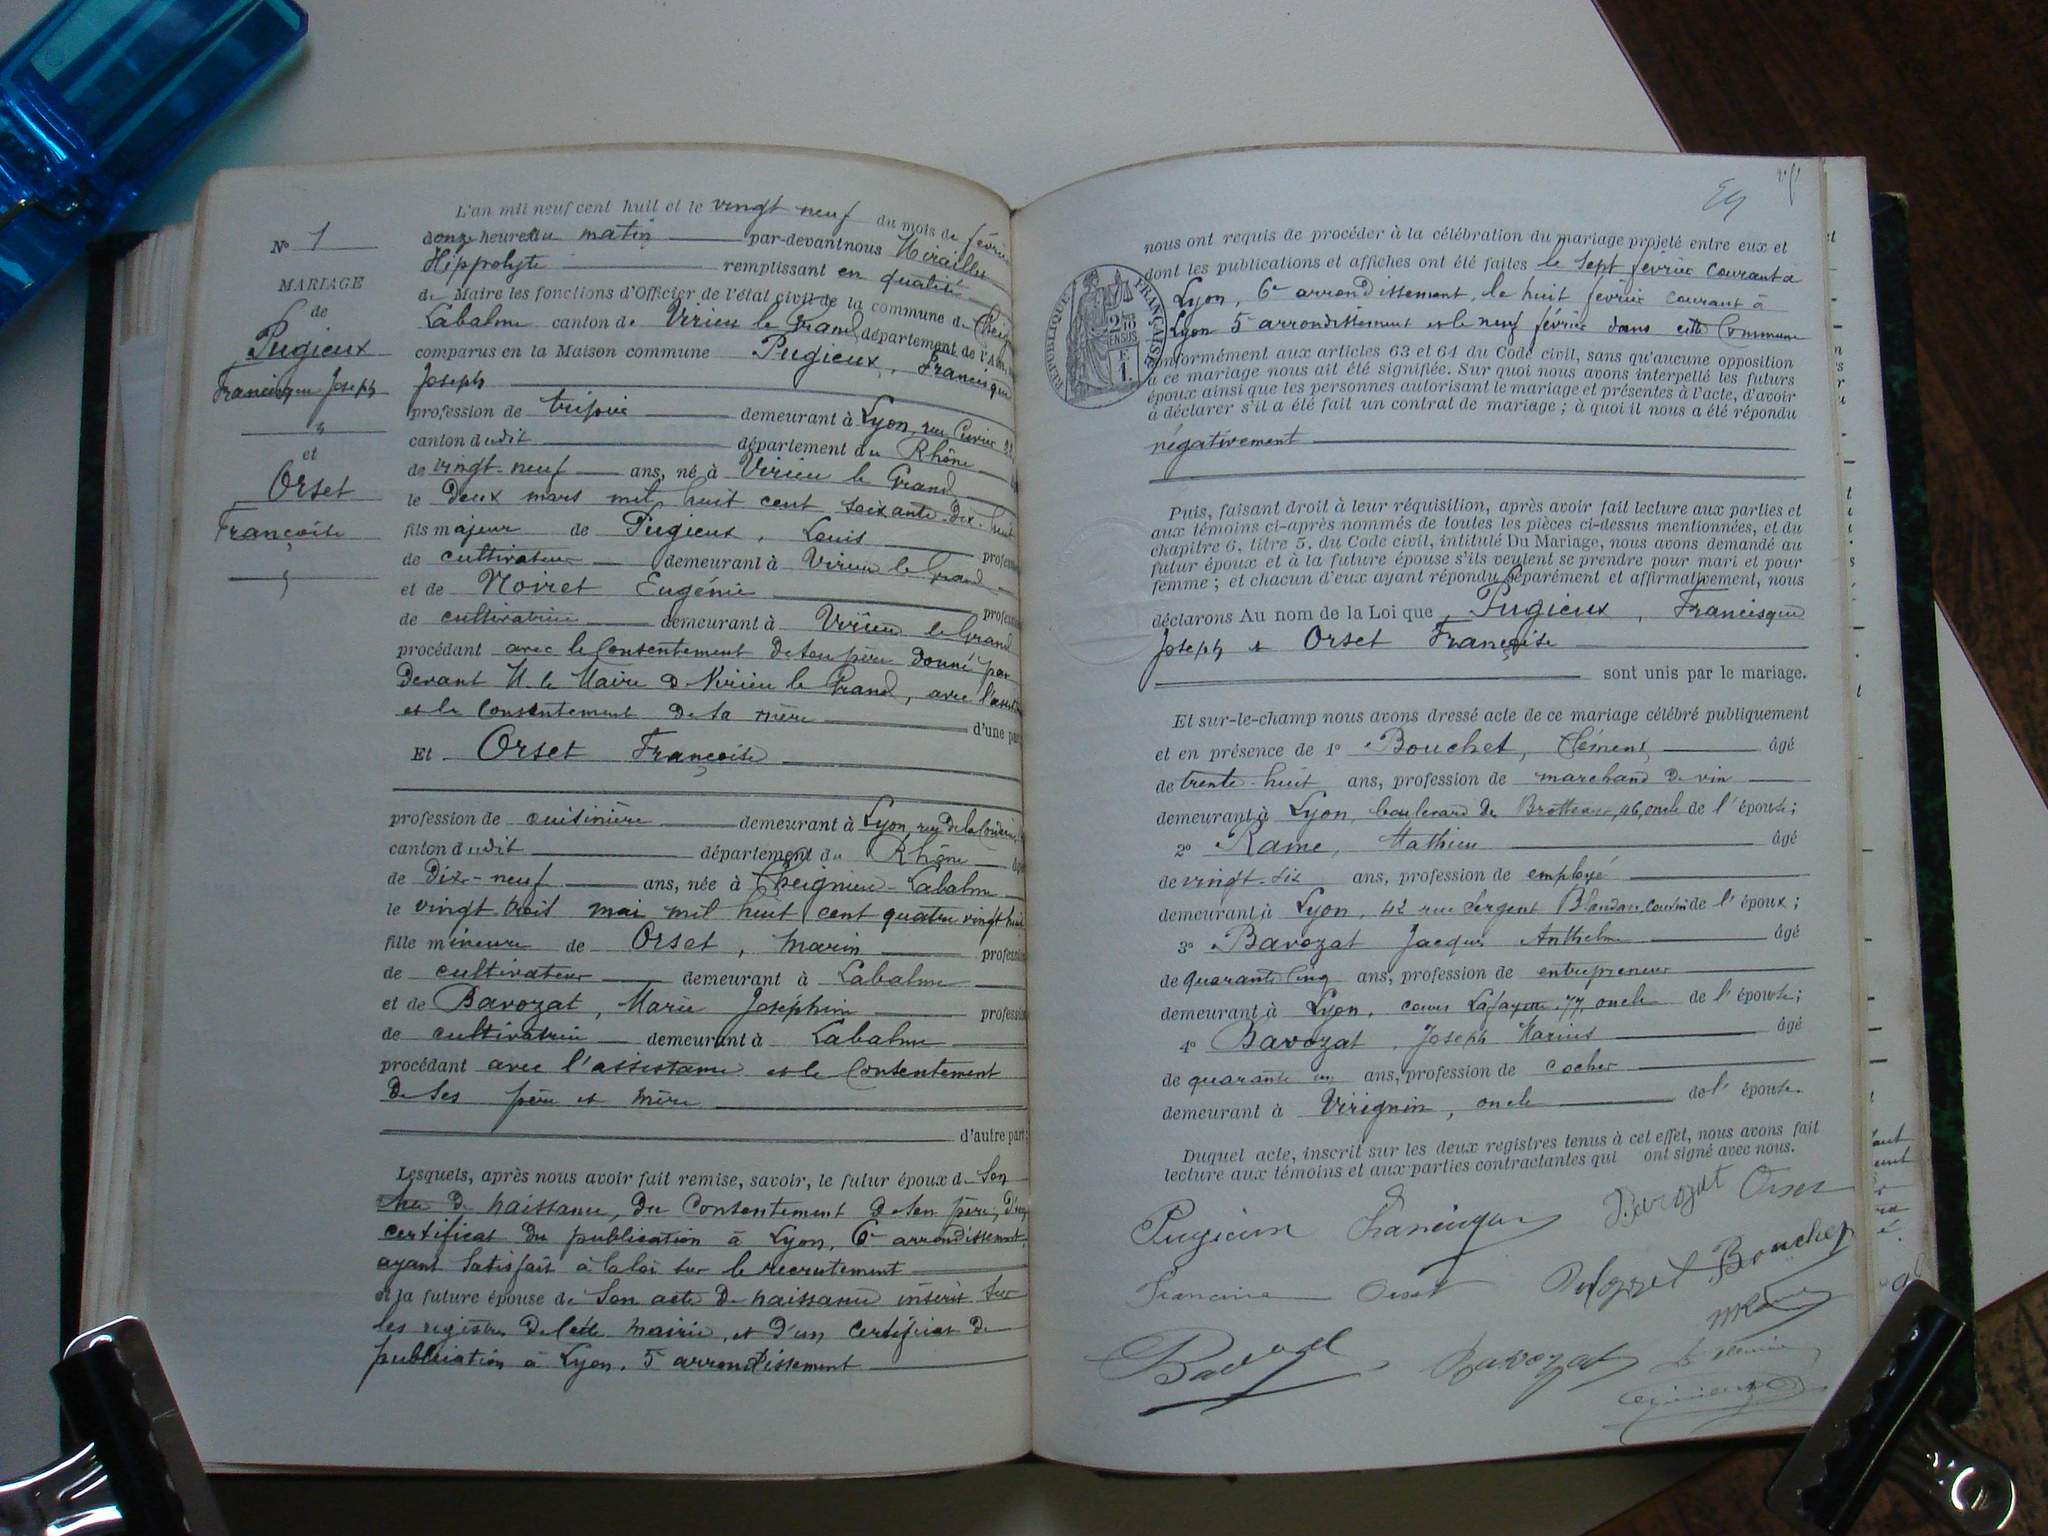 N° 1
MARIAGE
de
Pugieux
Francisque Joseph
et
Orset
Françoise
L'an mil neuf cent huit et le vingt neuf du mois de février
onze heures du matin par-devant nous Miraillet
Hippolyte remplissant en qualité
de Maire les fonctions d'Officier de l'état civil de la commune de Cheig
Labalme canton de Virieu le Grand département de l'Ain
comparus en la Maison commune Pugieux, Francisque
Joseph
profession de demeurant à Lyon, rue Cuvier
canton dudit département du Rhône
de vingt-neuf ans, né à Virieu le Grand
le deux mars mil huit cent soixante-dix-huit
fils majeur de Pugieux, Louis profession
de cultivateur demeurant à Virieu le Grand
et de Noiret Eugénie profession
de cultivatrice demeurant à Virieu le Grand
procédant avec le Consentement de son père donné par
devant M. le Maire de Virieu le Grand, avec l'assist
et le Consentement de sa mère d'une part
Et Orset Françoise
profession de cuisinière demeurant à Lyon, rue de la
canton dudit département du Rhône
de dix-neuf ans, née à Cheignieu-Labalme
le vingt trois mai mil huit cent quatre vingt huit
fille mineure de Orset, Marin profession
de cultivateur demeurant à Labalme
et de Bavozat, Marie Joséphine profession
de cultivatrice demeurant à Labalme
procédant avec l'assistance et le Consentement
de ses père et mère
d'autre part;
Lesquels, après nous avoir fait remise, savoir, le futur époux de son
acte de naissance, du Consentement de son père, d'un
certificat de publication à Lyon, 6e arrondissement,
ayant satisfait à la loi sur le recrutement
et la future épouse de son acte de naissance inscrit sur
les registres de cette mairie, et d'un certificat de
publication à Lyon, 5e arrondissement
nous ont requis de procéder à la célébration du mariage projeté entre eux et
dont les publications et affiches ont été faites le sept février courant à
Lyon, 6e arrondissement, le huit février courant à
Lyon 5e arrondissement et le neuf février dans cette Commune
conformément aux articles 63 et 64 du Code civil, sans qu'aucune opposition
à ce mariage nous ait été signifiée. Sur quoi nous avons interpellé les futurs
époux ainsi que les personnes autorisant le mariage et présentes à l'acte, d'avoir
à déclarer s'il a été fait un contrat de mariage; à quoi il nous a été répondu
négativement
RÉPUBLIQUE FRANÇAISE
2/10
EN SUS
F
1.
Puis, faisant droit à leur réquisition, après avoir fait lecture aux parties et
aux témoins ci-après nommés de toutes les pièces ci-dessus mentionnées, et du
chapitre 6, titre 5, du Code civil, intitulé Du Mariage, nous avons demandé au
futur époux et à la future épouse s'ils veulent se prendre pour mari et pour
femme; et chacun d'eux ayant répondu séparément et affirmativement, nous
déclarons Au nom de la Loi que Pugieux, Francisque
Joseph & Orset Françoise
sont unis par le mariage.
Et sur-le-champ nous avons dressé acte de ce mariage célébré publiquement
et en présence de 1° Bouchet, Clément, âgé
de trente-huit ans, profession de marchand de vin
demeurant à Lyon, boulevard des Brotteaux, 46, oncle de l'épouse;
2° Rame, Mathieu âgé
de vingt-six ans, profession de employé
demeurant à Lyon, 42 rue Sergent Blandan, cousin de l'époux;
3° Bavozat Jacques Anthelme âgé
de quarante cinq ans, profession de entrepreneur
demeurant à Lyon, cours Lafayette 77, oncle de l'épouse;
4° Bavozat, Joseph Marius âgé
de quarante un ans, profession de cocher
demeurant à Virignin, oncle de l'épouse.
Duquel acte, inscrit sur les deux registres tenus à cet effet, nous avons fait
lecture aux témoins et aux parties contractantes qui ont signé avec nous.
Pugieux Francisque Bavozat Orset
Françoise Orset Bouchet
Bavozat